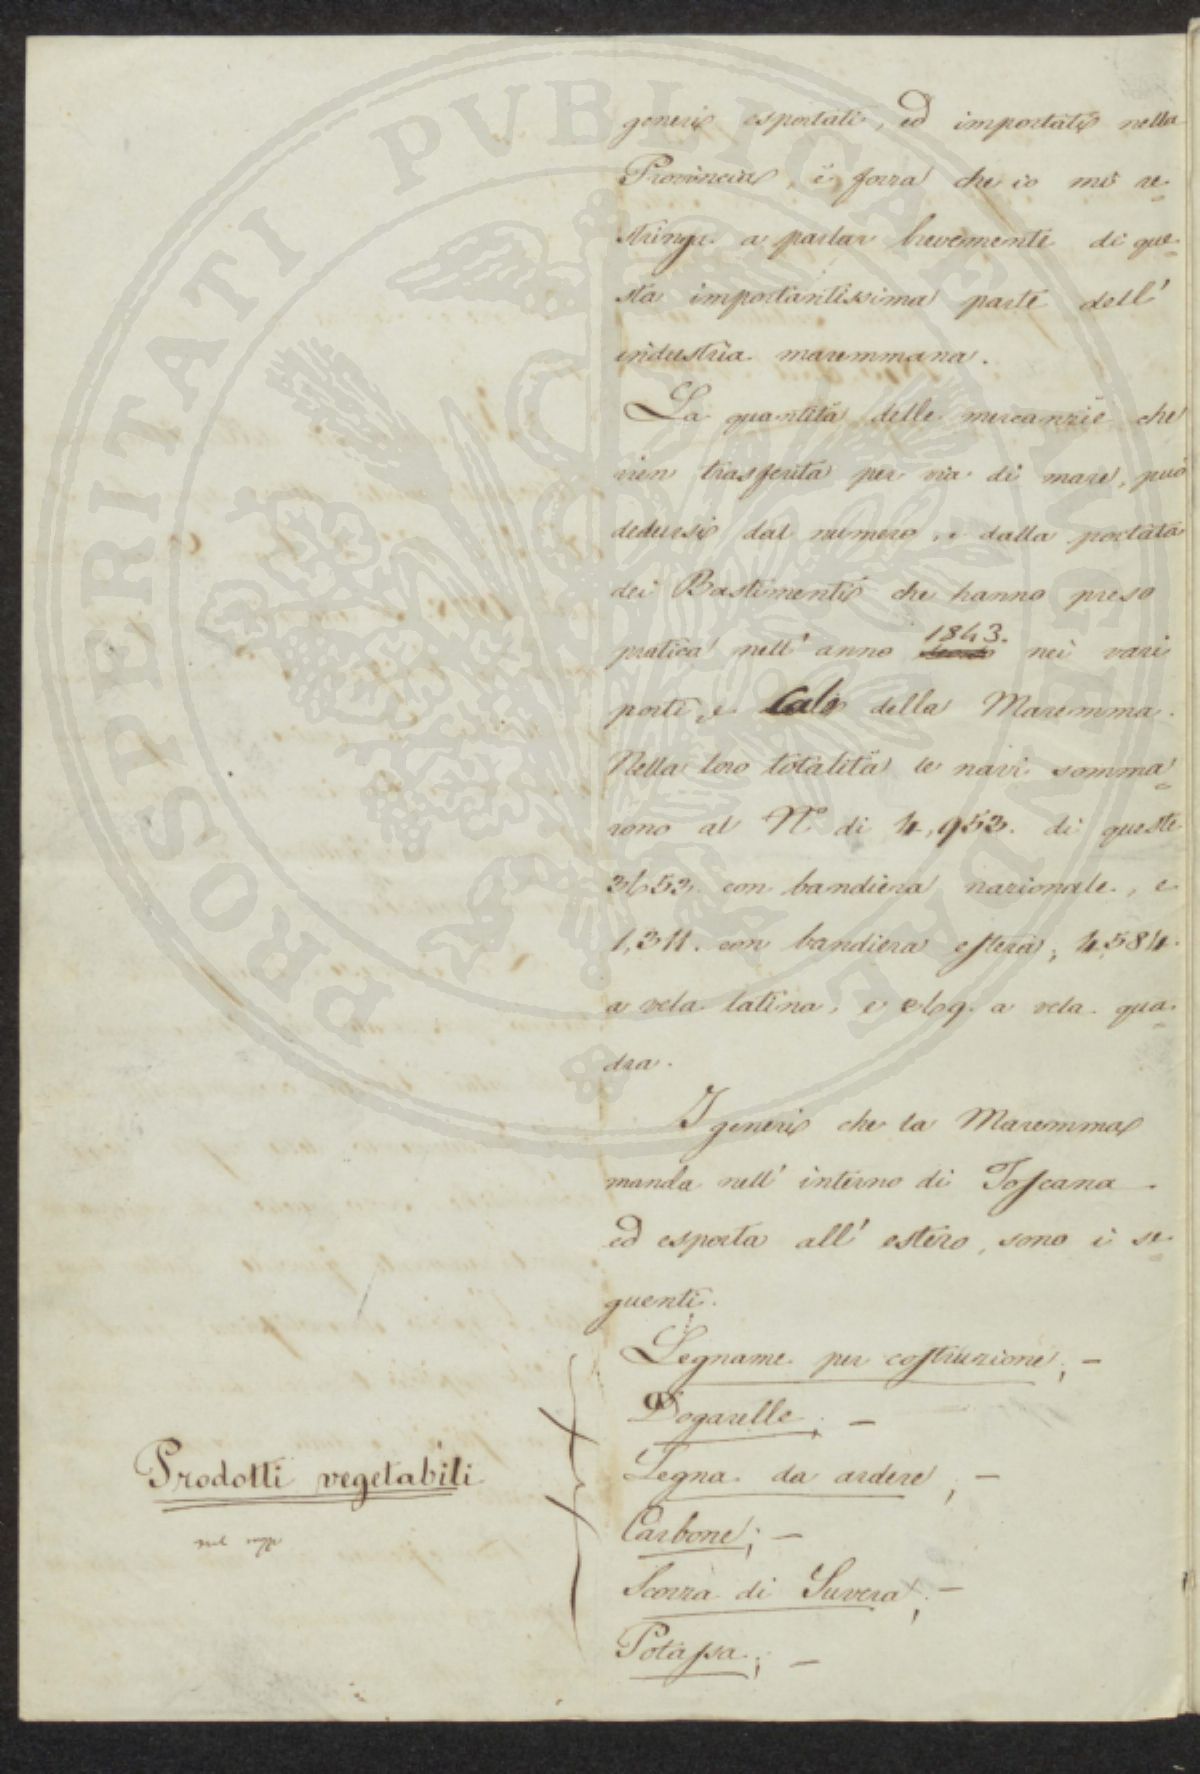 generi esportati, ed importati nella
Provincia, è forza che io mi re=
stringa a parlar brevemente di que=
sta importantissima parte dell'
industria maremmana.
La quantità delle mercanzie che
vien trasferita per via di mare, può
dedursi dal numero, e dalla portata
dei Bastimenti che hanno preso
pratica nell'anno 1843. nei vari
porti, e Cali della Maremma.
Nella loro totalità le navi somma=
rono al N.º di 4,953. di queste
con bandiera nazionale, e
1,311. con bandiera estera; 4,584.
a vela latina, e a vela qua=
dra.
I generi che la Maremma
manda nell'interno di Toscana
ed esporta all'estero, sono i se=
guenti.
Legname per costruzione; —
Dogarelle; —
Legna da ardere; —
Carbone; —
Scorza di Suvera; —
Potassa; —
Prodotti vegetabili
PROSPERITATI PUBLICAE AUGENDAE